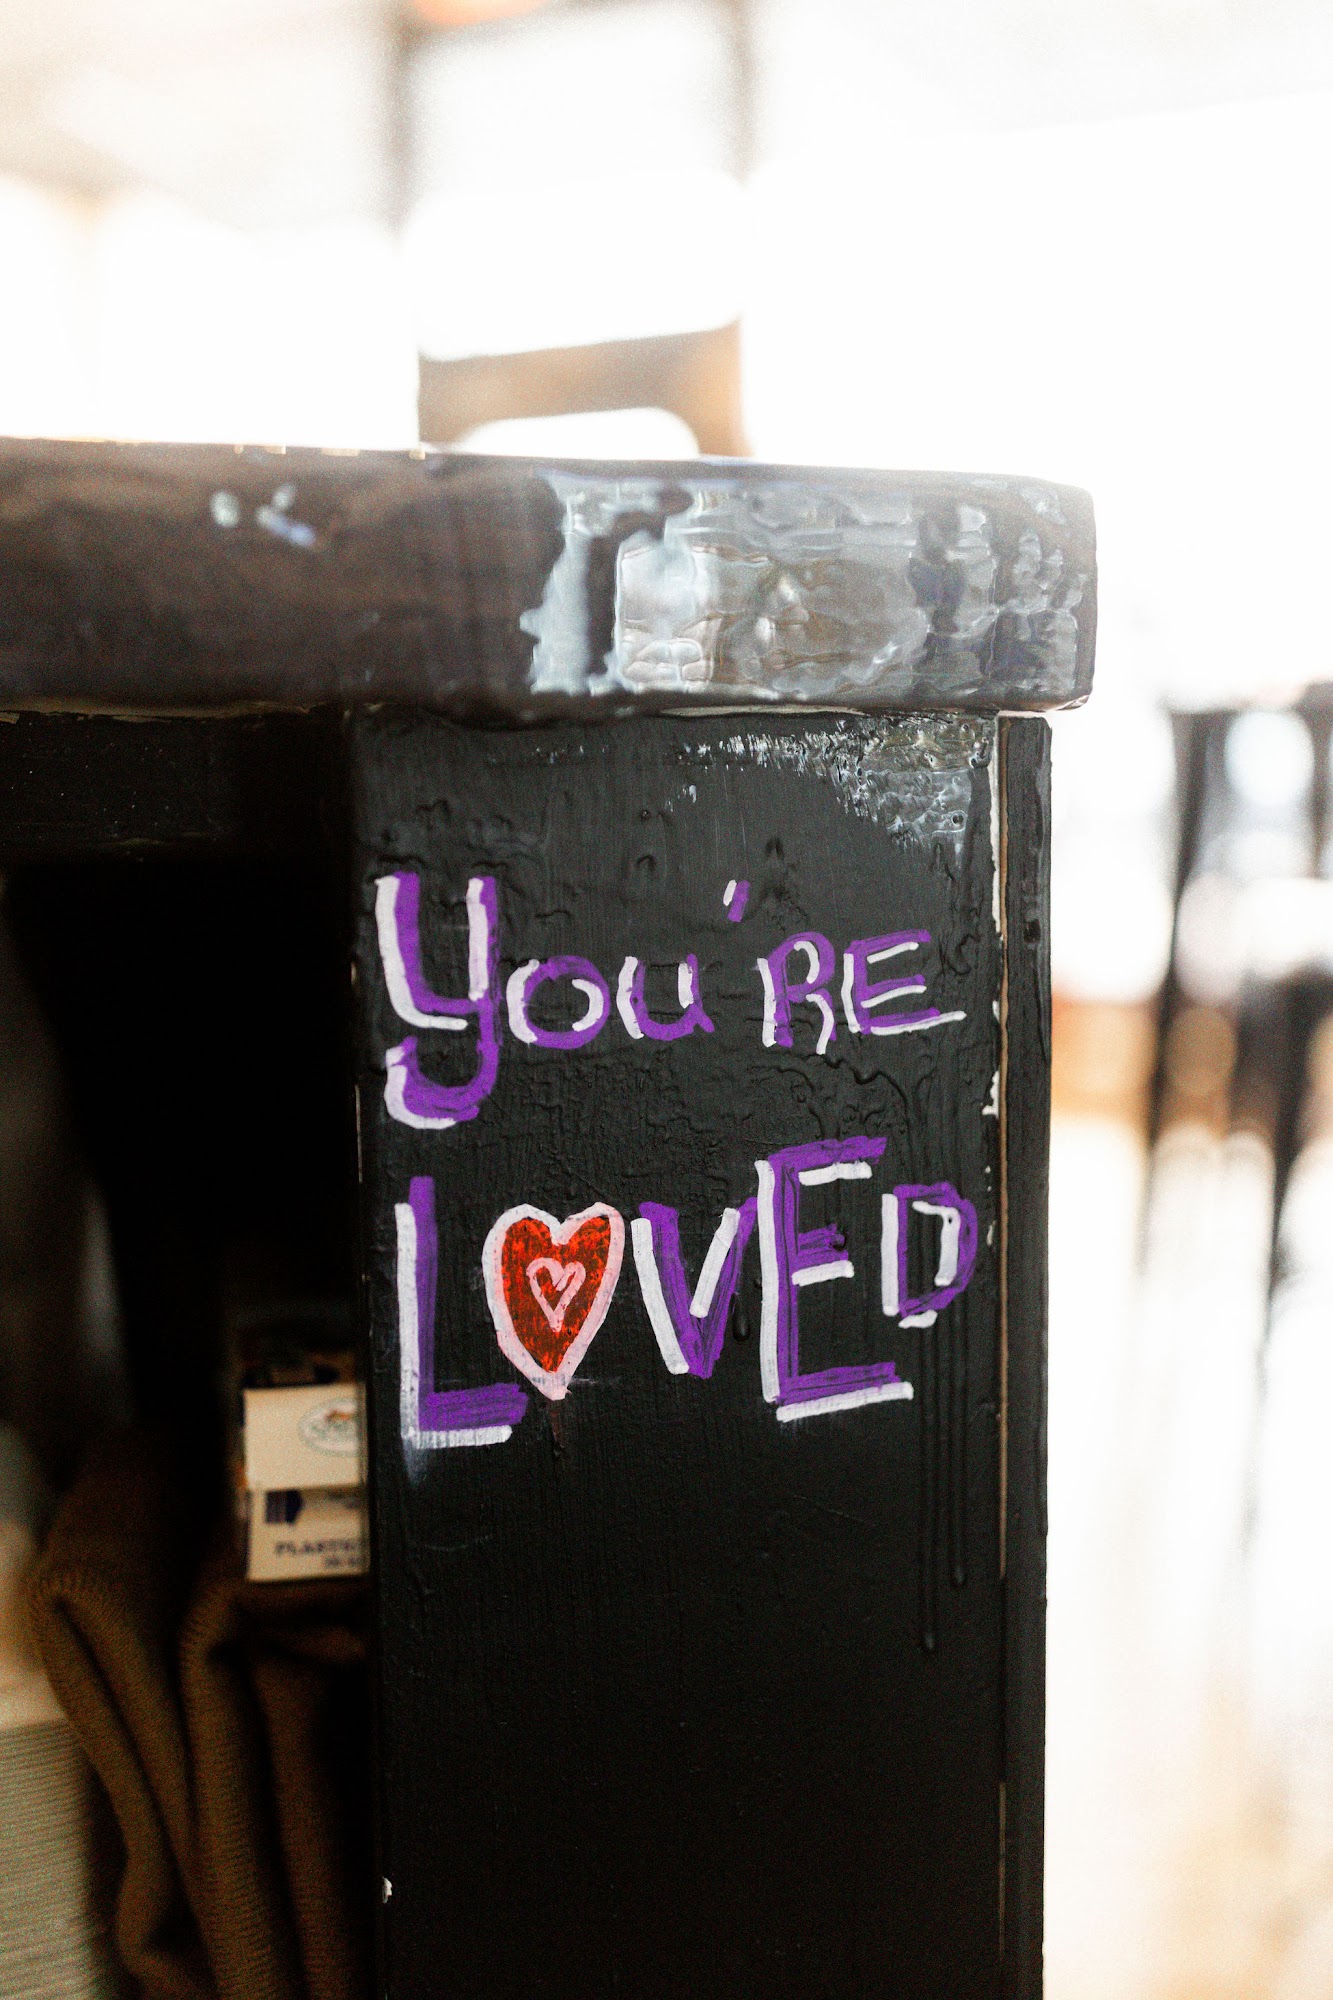 You're
LOVED